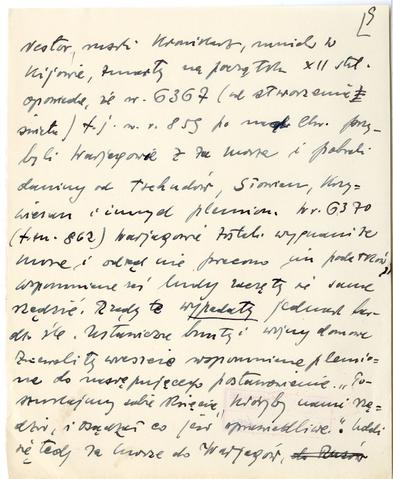 5
Nestor, ruski kronikarz, mnich w
Kijowie, zmarły na początk XII stul.
opowiada, że w r. 6367 (od stworzenia
świata) t.j. w r. 859 po Chr. przy-
byli Warjagowie z za morza i pobrali
daninę od Tschudów, Słowian, Kry-
wiczan i innych plemion. W r. 6370
(t.zn. 862) Warjagowie zostali wygnani za
morze, i odtąd nie płacono im podatków,
wspomniane zaś ludy zaczęły się same
rządzić. Rządy te wypadały jednak bar-
dzo źle. Ustawiczne bunty i wojny domowe
zniewoliły wreszcie wspomniane plemio-
na do następującego postanowienia: „Po-
szukajmy sobie Księcia, któryby nami rzą-
dził, i osądzał co jest sprawiedliwe". Udali
się tedy za morze do Warjagów, do Rusów